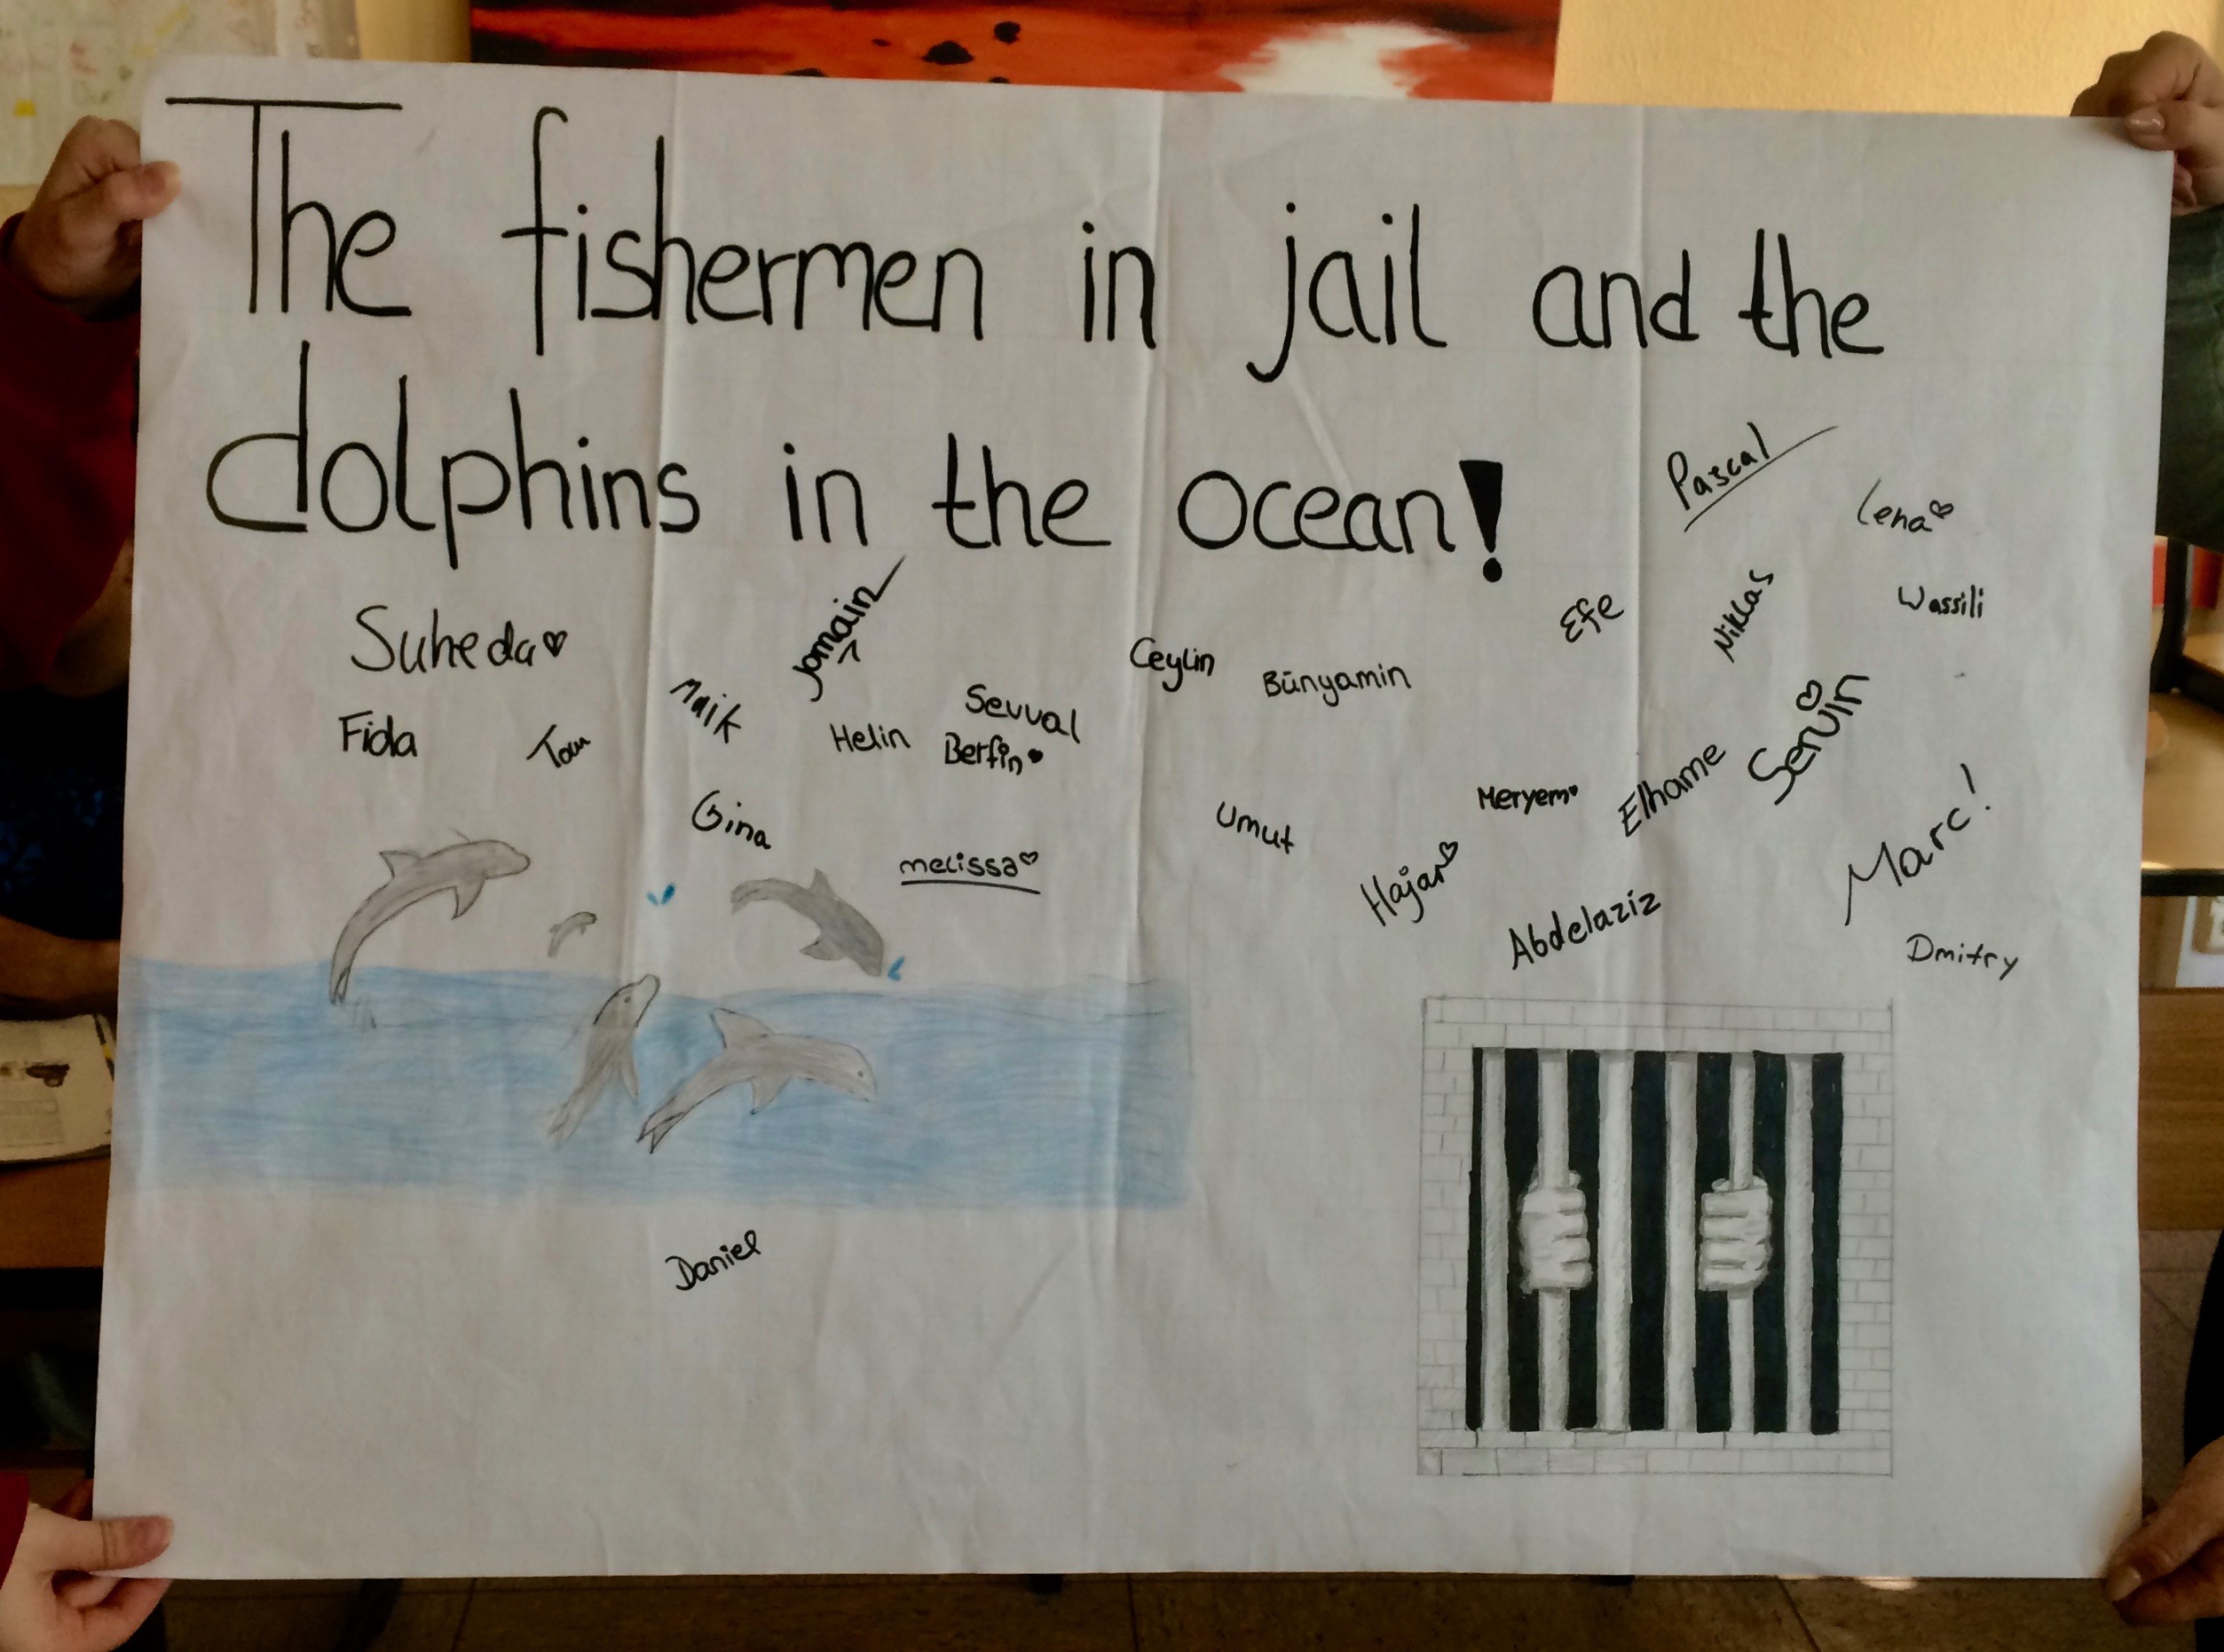 The fishermen in jail and the
dolphins in the ocean!
Pascal
Lena
Suheda
Jomain
Efe
Niklas
Wassili
Fida
Tom
Maik
Helin
Sevval
Berfin
Ceylin
Bünyamin
Servin
Gina
melissa
Umut
Meryem
Elhame
Marc!
Hajar
Abdelaziz
Dmitry
Daniel